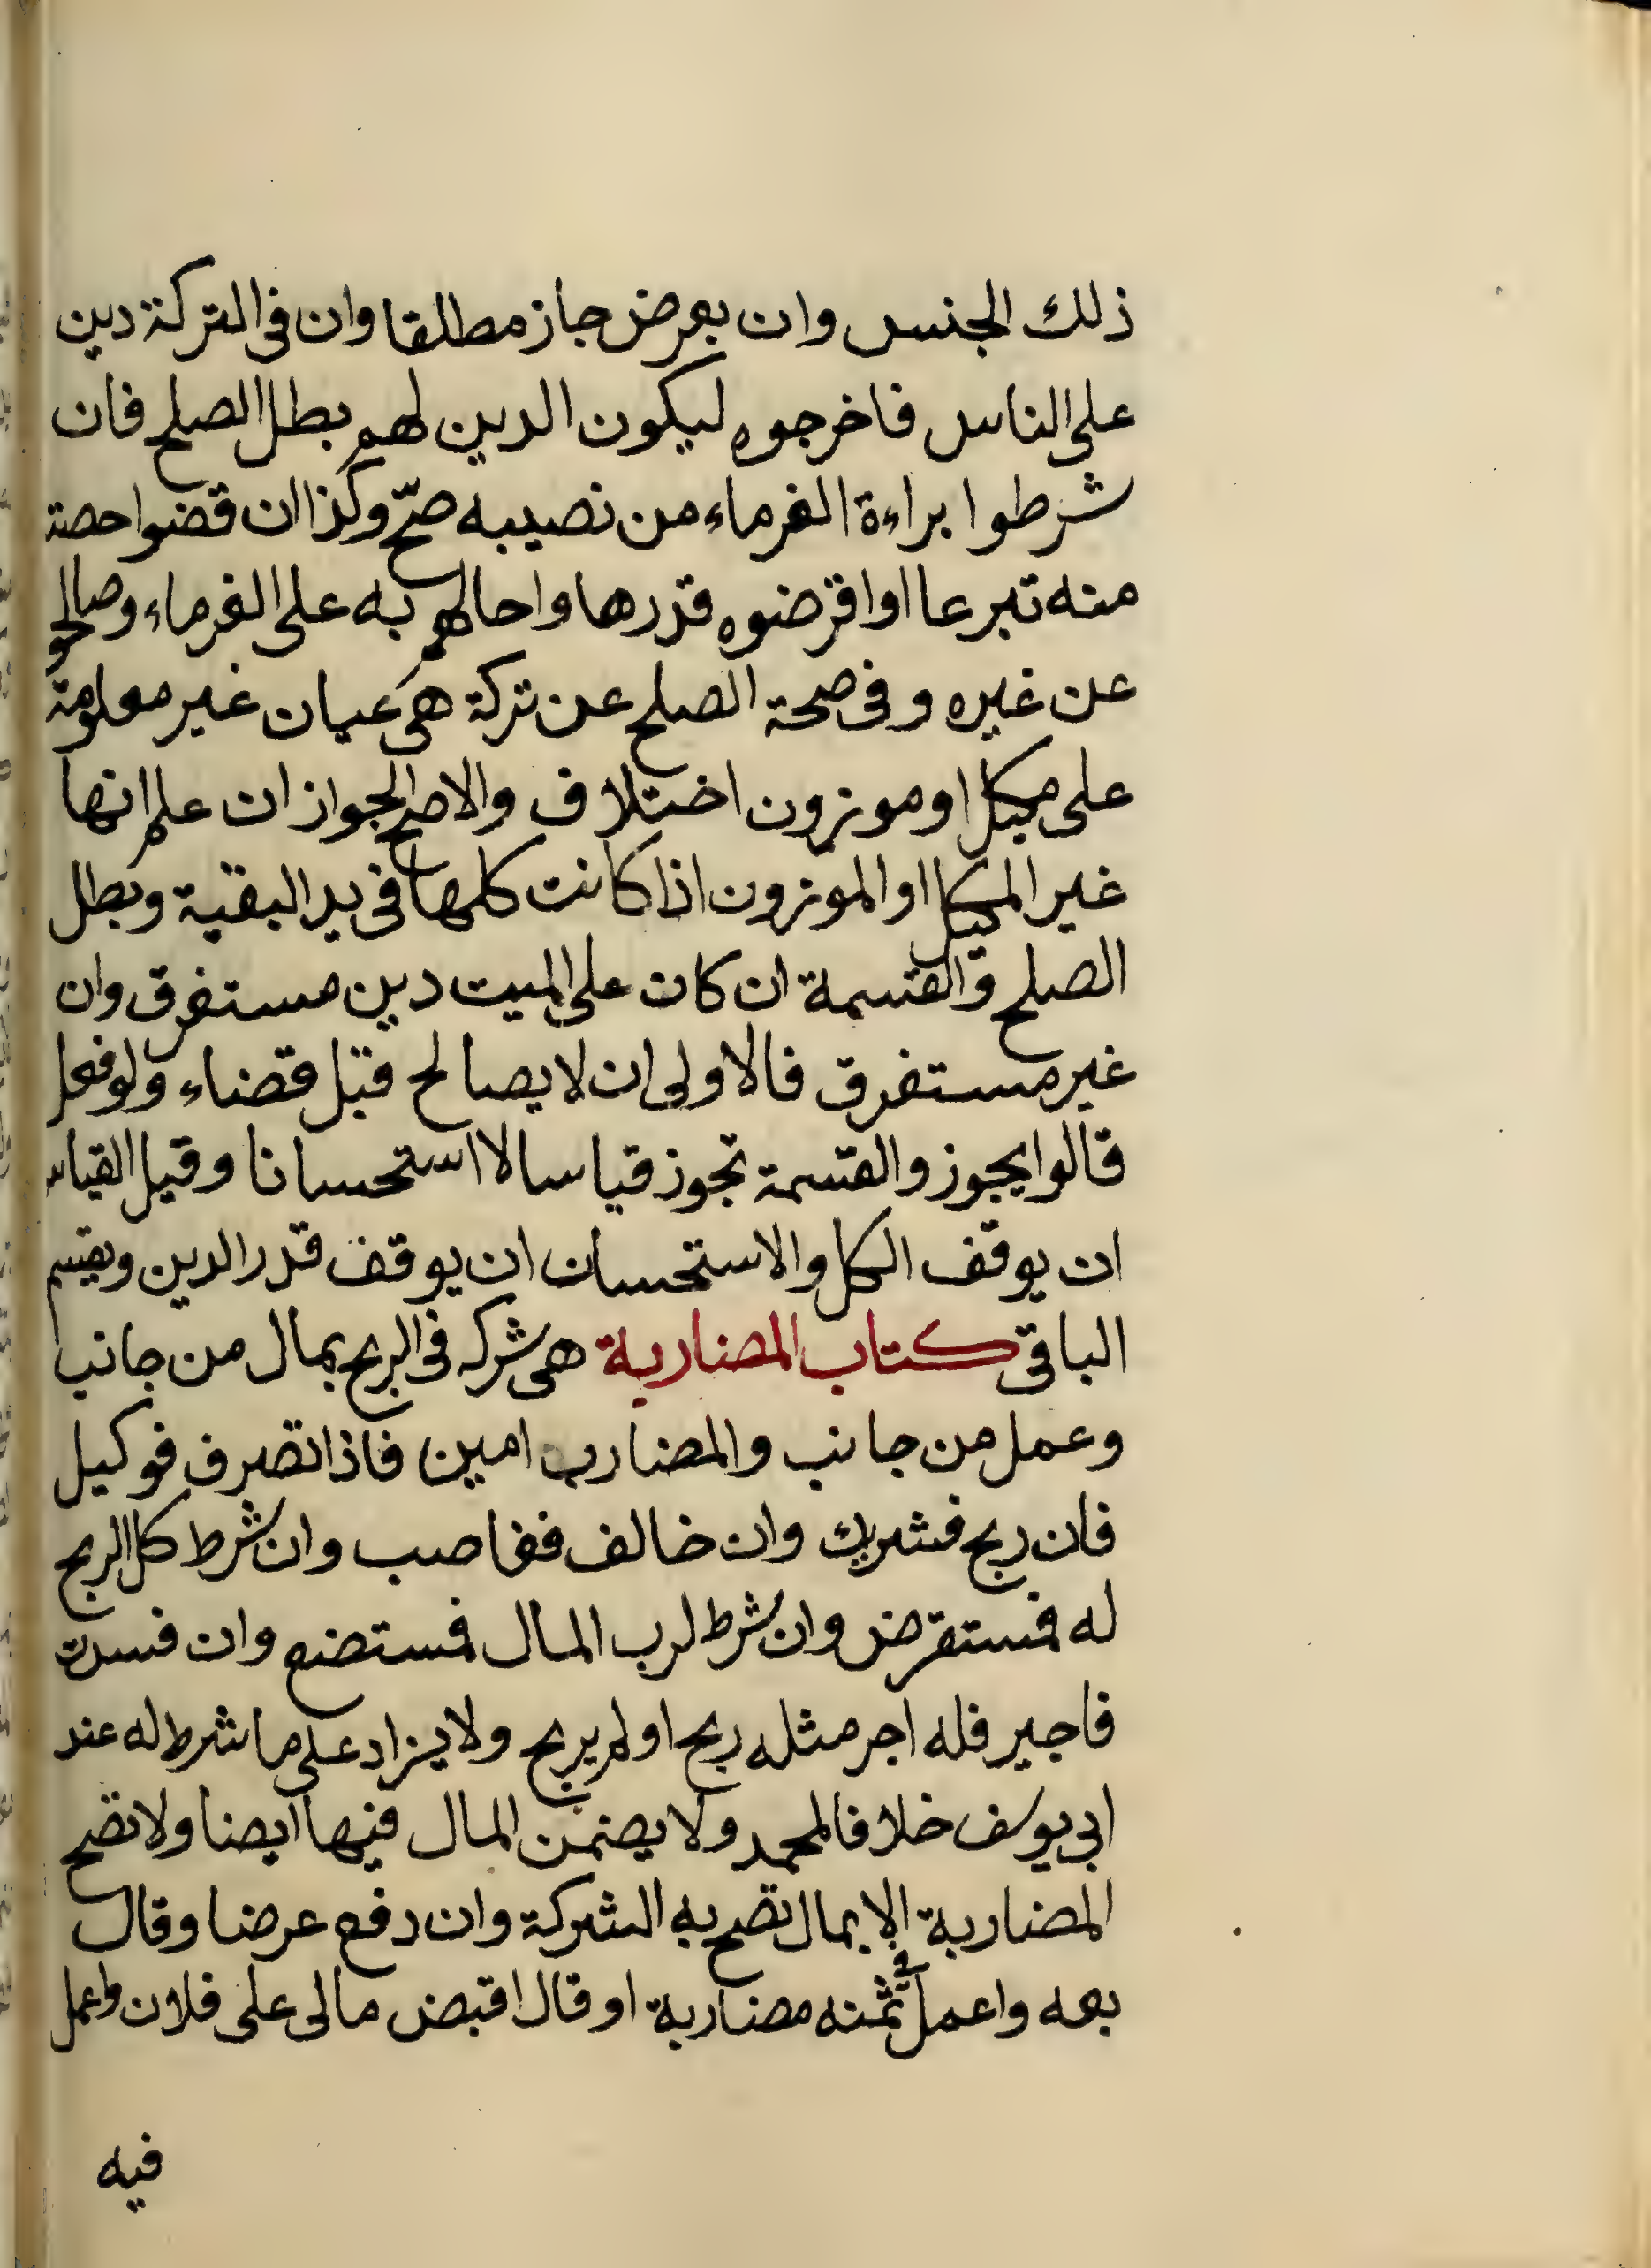 ذلك الجنس وان بعرض جاز مطلقا وان فى التركة دين
على الناس فاخرجوه ليكون الدين لهم بطل الصلح فان
شرطوا براءة الغرماء من نصيبه صحّ وكذا ان قضوا حصة
منه تبرعا او اقرضوه قدرها واحالهم به على الغرماء وصالحو
عن غيره وفى صحة الصلح عن تركة هى عيان غير معلومة
على مكيل او موزون اختلاف والاصح الجواز ان علم انها
غير المكيل او الموزون اذا كانت كلها فى يد البقية وبطل
الصلح والقسمة ان كان على الميت دين مستغرق وان
غير مستغرق فالاولى ان لا يصالح قبل قضاء ولو فعل
قالوا يجوز والقسمة تجوز قياسا لا استحسانا وقيل القياس
ان يوقف الكل والاستحسان ان يوقف قدر الدين ويقسم
الباقى كتاب المضاربة هى شركه فى الربح بمال من جانب
وعمل من جانب والمضارب امين فاذا تصرف فوكيل
فان ربح فشريك وان خالف فغاصب وان شرط كل الربح
له فمستقرض وان شرط لرب المال فمستضع وان فسدت
فاجير فله اجر مثله ربح او لم يربح ولا يزاد على ما شرط له عند
ابى يوسف خلافا لمحمد ولا يضمن المال فيها ايضا ولا تصح
المضاربة الا بمال تصح به الشركة وان دفع عرضا وقال
بعه واعمل فى ثمنه مضاربة او قال اقبض مالى على فلان واعمل
فيه